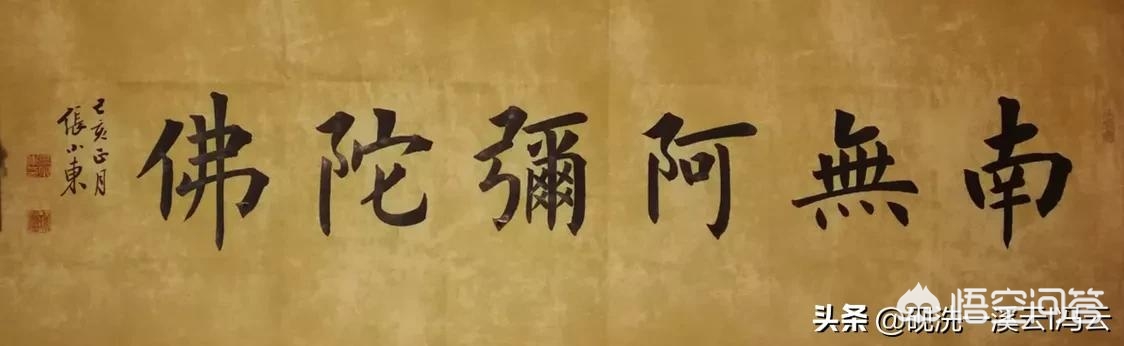 南無阿彌陀佛
己亥正月
張小東
悟空问答
头条 @砚洗一溪云1冯云